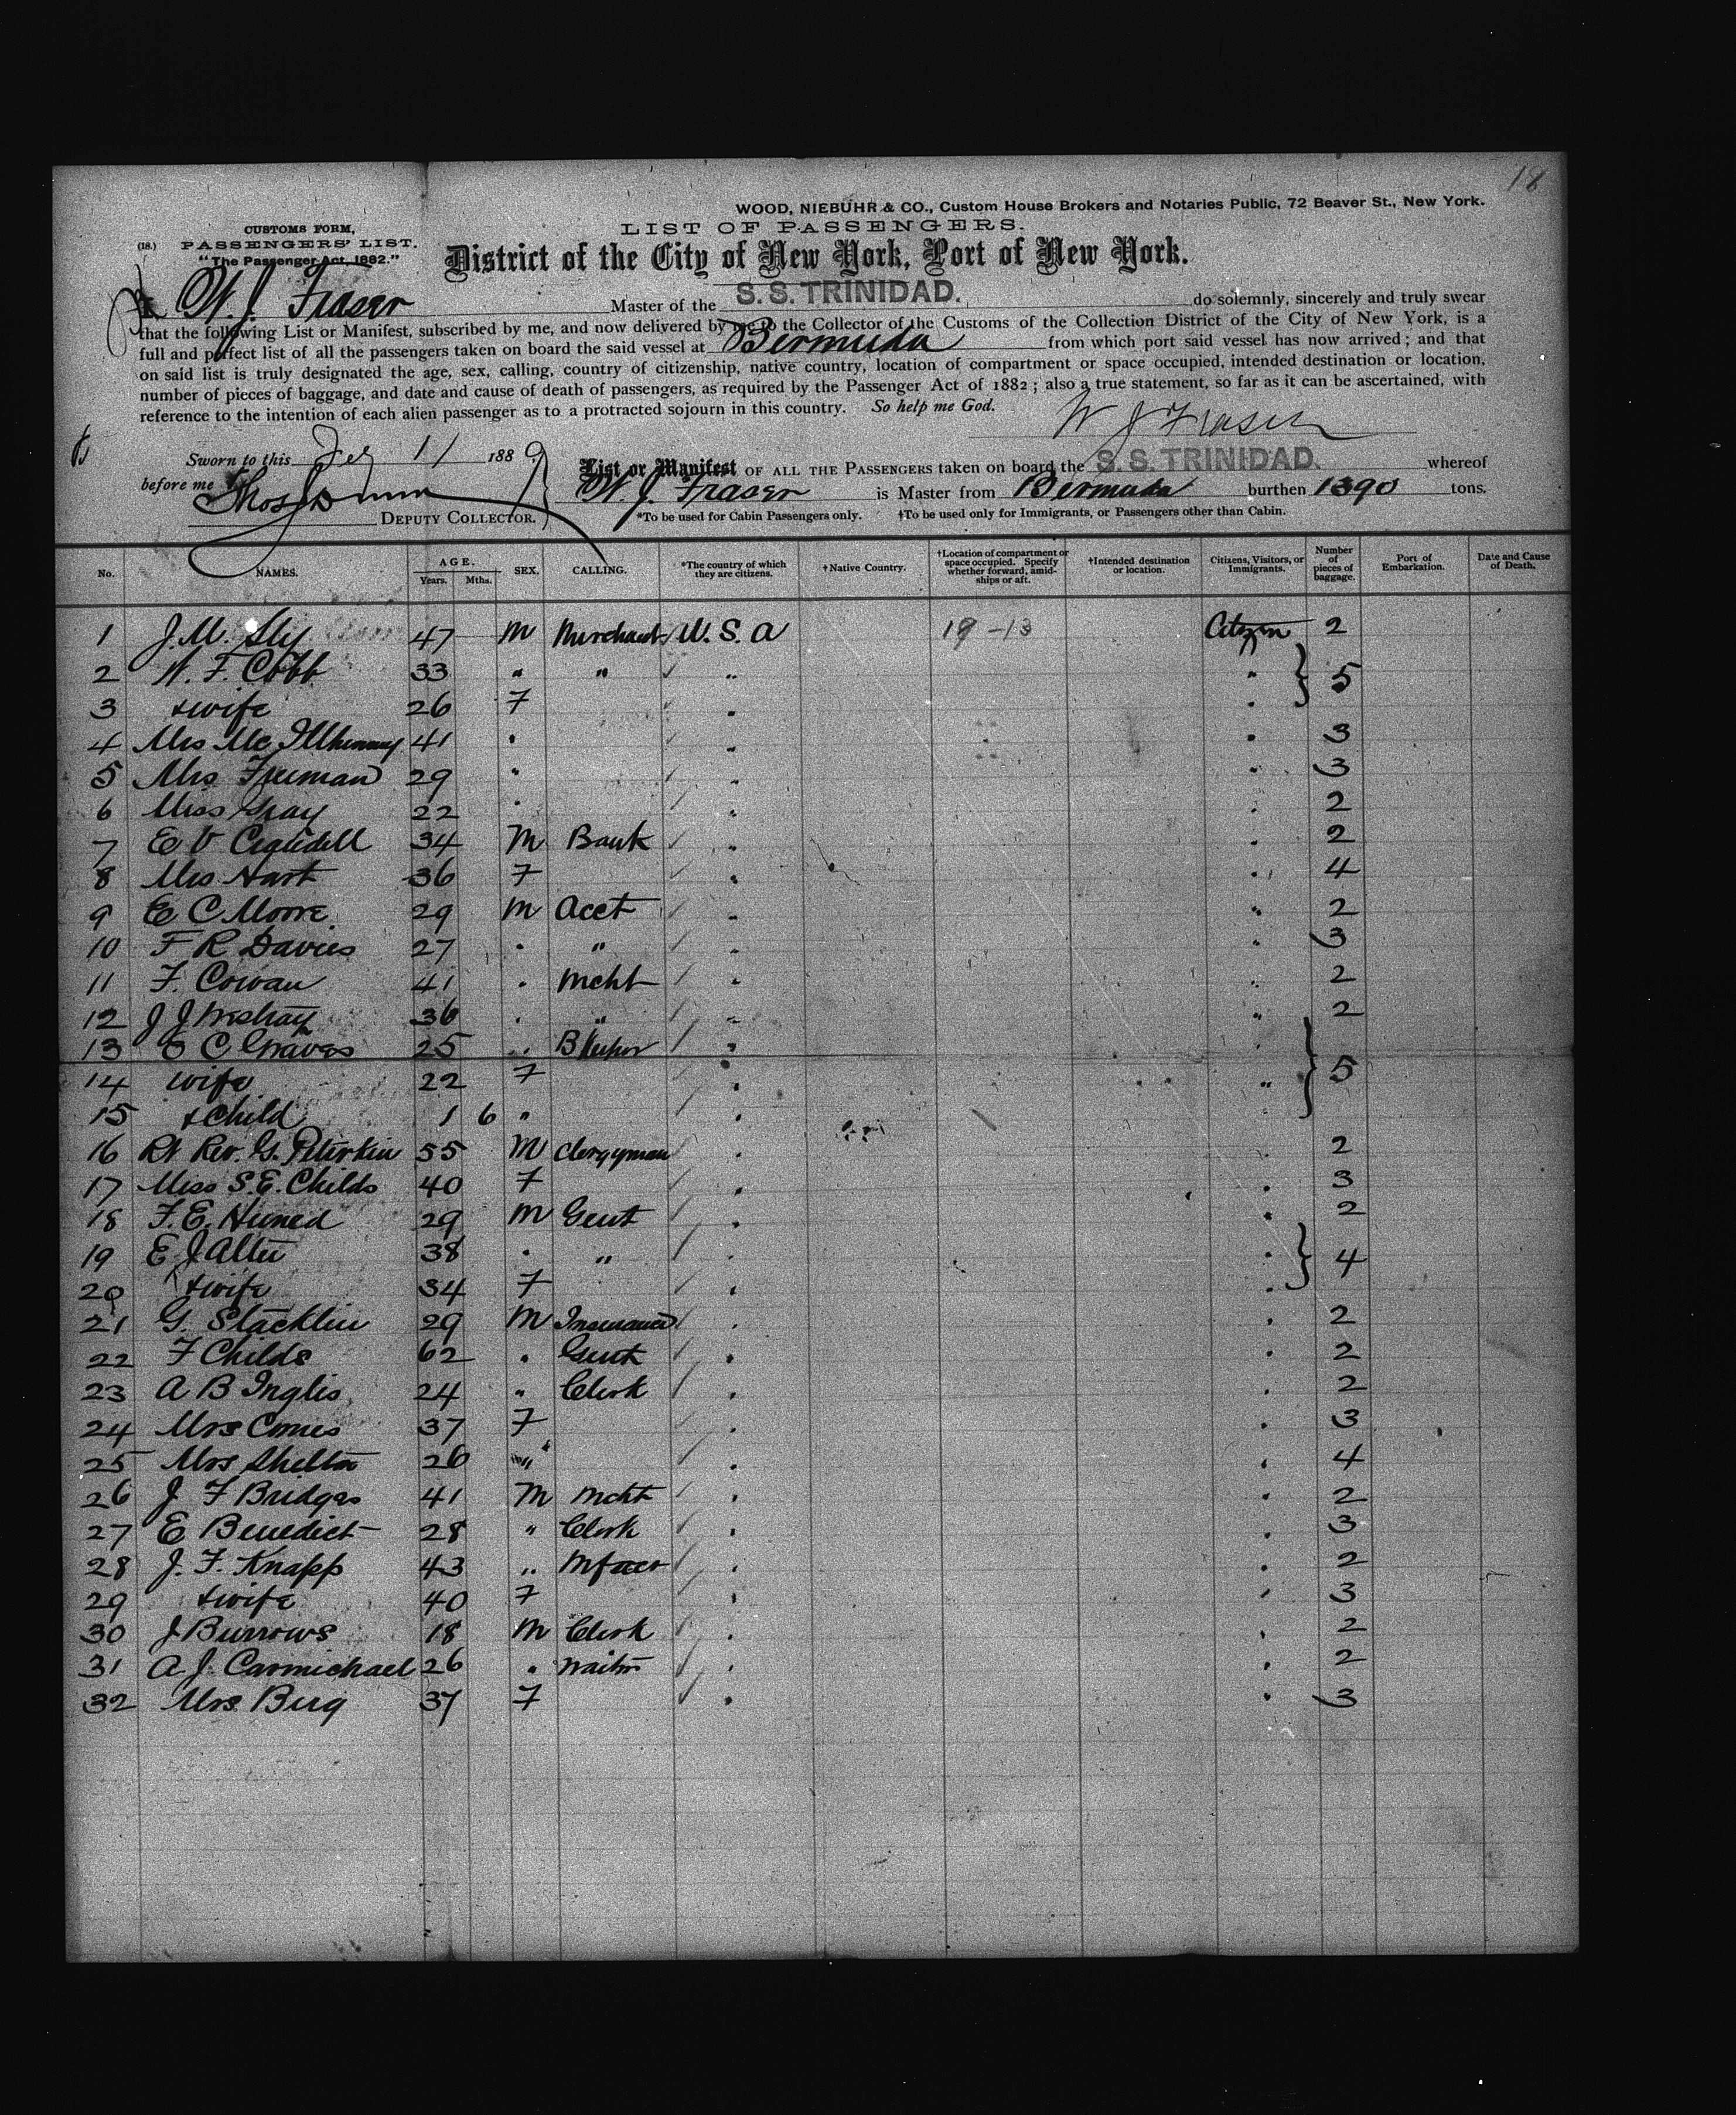 18
WOOD, NIEBUHR & CO., Custom House Brokers and Notaries Public, 72 Beaver St., New York.
CUSTOMS FORM,
LIST OF PASSENGERS.
(18.) PASSENGERS' LIST.
"The Passenger Act, 1882."
District of the City of New York, Port of New York.
I, W. J. Fraser Master of the S. S. TRINIDAD. do solemnly, sincerely and truly swear
that the following List or Manifest, subscribed by me, and now delivered by me to the Collector of the Customs of the Collection District of the City of New York, is a
full and perfect list of all the passengers taken on board the said vessel at Bermuda from which port said vessel has now arrived; and that
on said list is truly designated the age, sex, calling, country of citizenship, native country, location of compartment or space occupied, intended destination or location,
number of pieces of baggage, and date and cause of death of passengers, as required by the Passenger Act of 1882; also a true statement, so far as it can be ascertained, with
reference to the intention of each alien passenger as to a protracted sojourn in this country. So help me God.
W J Fraser
Sworn to this 11 1889
before me
DEPUTY COLLECTOR.
List or Manifest OF ALL THE PASSENGERS taken on board the S. S. TRINIDAD. whereof
W. J. Fraser is Master from Bermuda burthen 1390 tons.
*To be used for Cabin Passengers only. †To be used only for Immigrants, or Passengers other than Cabin.
No. NAMES. AGE. Years. Mths. SEX. CALLING. *The country of which they are citizens. †Native Country. †Location of compartment or space occupied. Specify whether forward, amidships or aft. †Intended destination or location. Citizens, Visitors, or Immigrants. Number of pieces of baggage. Port of Embarkation. Date and Cause of Death.
1 J. M. Sly 47 M Merchant U. S. A 19-13 Citizen 2
2 W. F. Cobb 33 " " " " 5
3 + wife 26 F " "
4 Mrs Mc Illhenny 41 " " " 3
5 Mrs Freeman 29 " " " 3
6 Miss Gray 22 " " " 2
7 E V 34 M Bank " " 2
8 Mrs Hart 36 F " " 4
9 E C Moore 29 M Acct " " 2
10 F R Davies 27 " " " " 3
11 F. Cowan 41 " Mcht " " 2
12 J J 36 " " " " 2
13 C Graves 25 " B Keeper " " 5
14 wife 22 F " "
15 + Child 1 6 " "
16 Rt Rev. G. Peterkin 55 M Clergyman " " 2
17 Miss S. E. Childs 40 F " " 3
18 F. E. 29 M Gent " " 2
19 E J Alter 38 " " " " 4
20 + wife 34 F " "
21 G. Stacklin 29 M Insurance " 2
22 F Childs 62 " Gent " " 2
23 A B Inglis 24 " Clerk " " 2
24 Mrs 37 F " " 3
25 Mrs Shelton 26 " " " 4
26 J F Bridges 41 M Mcht " " 2
27 E Benedict 28 " Clerk " " 3
28 J. F. Knapp 43 " " " 2
29 + wife 40 F " " 3
30 J Burrows 18 M Clerk " " 2
31 A J. Carmichael 26 " Waiter " " 2
32 Mrs Berg 37 F " " 3